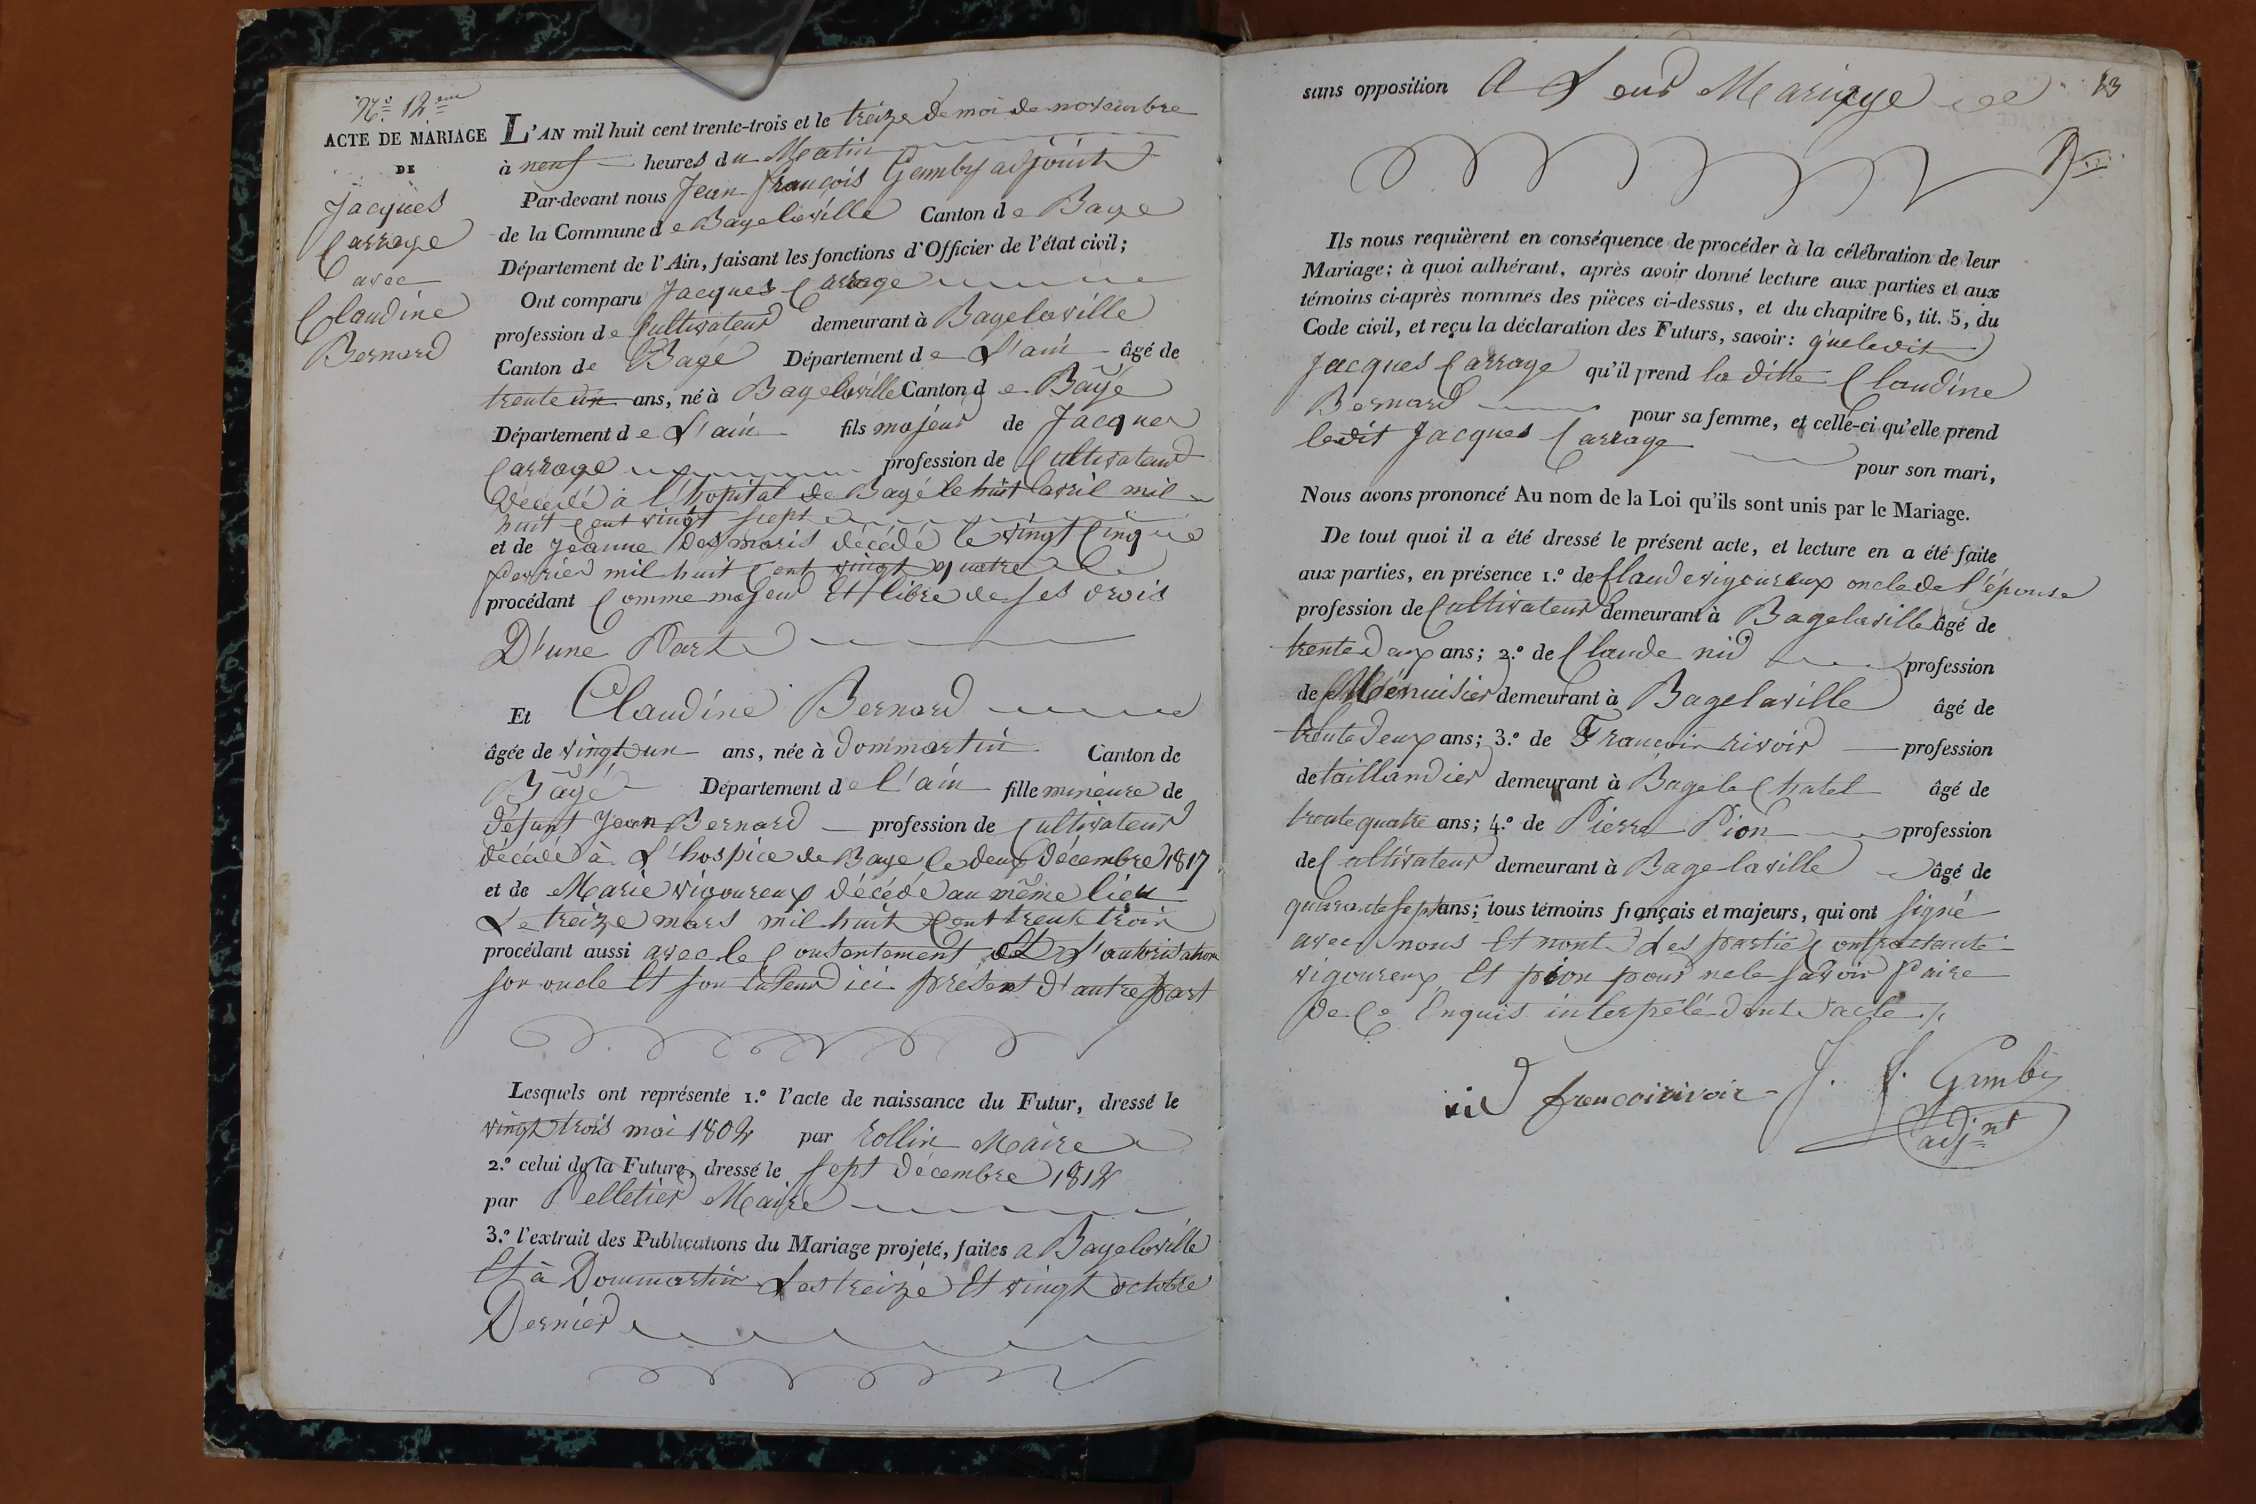 N.° 12.me
ACTE DE MARIAGE
DE
Jacques
Carrage
avec
Claudine
Bernard
L'AN mil huit cent trente-trois et le treize de moi de novembre
à neuf heures du Matin
Par-devant nous Jean françois Gamby adjoint
de la Commune de Bagelaville Canton de Bage
Département de l'Ain, faisant les fonctions d'Officier de l'état civil;
Ont comparu Jacques Carrage
profession de Cultivateur demeurant à Bagelaville
Canton de Bagé Département de L'ain âgé de
trente un ans, né à Bagelaville Canton de Bagé
Département de L'ain fils majeur de Jacques
Carrage profession de Cultivateur
décédé à l'hopital de Bagé le huit avril mil
huit Cent vingt sept
et de Jeanne Desmaris décédé le vingt Cinq
fevrier mil huit Cent vingt quatre
procédant Comme majeur Et libre de ses drois
D'une Part
Et Claudine Bernard
âgée de vingt un ans, née à dommartin Canton de
Bagé Département de l'ain fille mineure de
défunt Jean Bernard profession de Cultivateur
décédé à L'hospice de Bage le deux décembre 1817
et de Marie vigoureux décédé au même lieu
Le treize mars mil huit Cent trente trois
procédant aussi avec le Consentement Et L'autorisation
son oncle Et son tuteur ici présent d'autre part
Lesquels ont représenté 1.° l'acte de naissance du Futur, dressé le
vingt trois mai 1802 par rollin Maire
2.° celui de la Future, dressé le sept décembre 1812
par Pelletier Maire
3.° l'extrait des Publications du Mariage projeté, faites a Bagelaville
Et à Dommartin Les treize Et vingt octobre
Dernier
13
sans opposition A Leur Mariage
Ils nous requièrent en conséquence de procéder à la célébration de leur
Mariage; à quoi adhérant, après avoir donné lecture aux parties et aux
témoins ci-après nommés des pièces ci-dessus, et du chapitre 6, tit. 5, du
Code civil, et reçu la déclaration des Futurs, savoir: que ledit
Jacques Carrage qu'il prend la ditte Claudine
Bernard pour sa femme, et celle-ci qu'elle prend
ledit Jacques Carrage pour son mari,
Nous avons prononcé Au nom de la Loi qu'ils sont unis par le Mariage.
De tout quoi il a été dressé le présent acte, et lecture en a été faite
aux parties, en présence 1.° de Claude vigoureux oncle de l'épouse
profession de Cultivateur demeurant à Bagelaville âgé de
trente deux ans; 2.° de Claude nid profession
de Menuisier demeurant à Bagelaville âgé de
trente deux ans; 3.° de François rivoir profession
de taillandier demeurant à Bage le Chatel âgé de
trente quatre ans; 4.° de Pierre Pion profession
de Cultivateur demeurant à Bagelaville âgé de
quarante sept ans; tous témoins français et majeurs, qui ont signé
avec nous Et nont Les partie Contractante
vigoureux Et pion pour ne le savoir faire
de Ce Enquis interpelé dont acte
nid francoirivoir J. f. Gamby
adj.nt